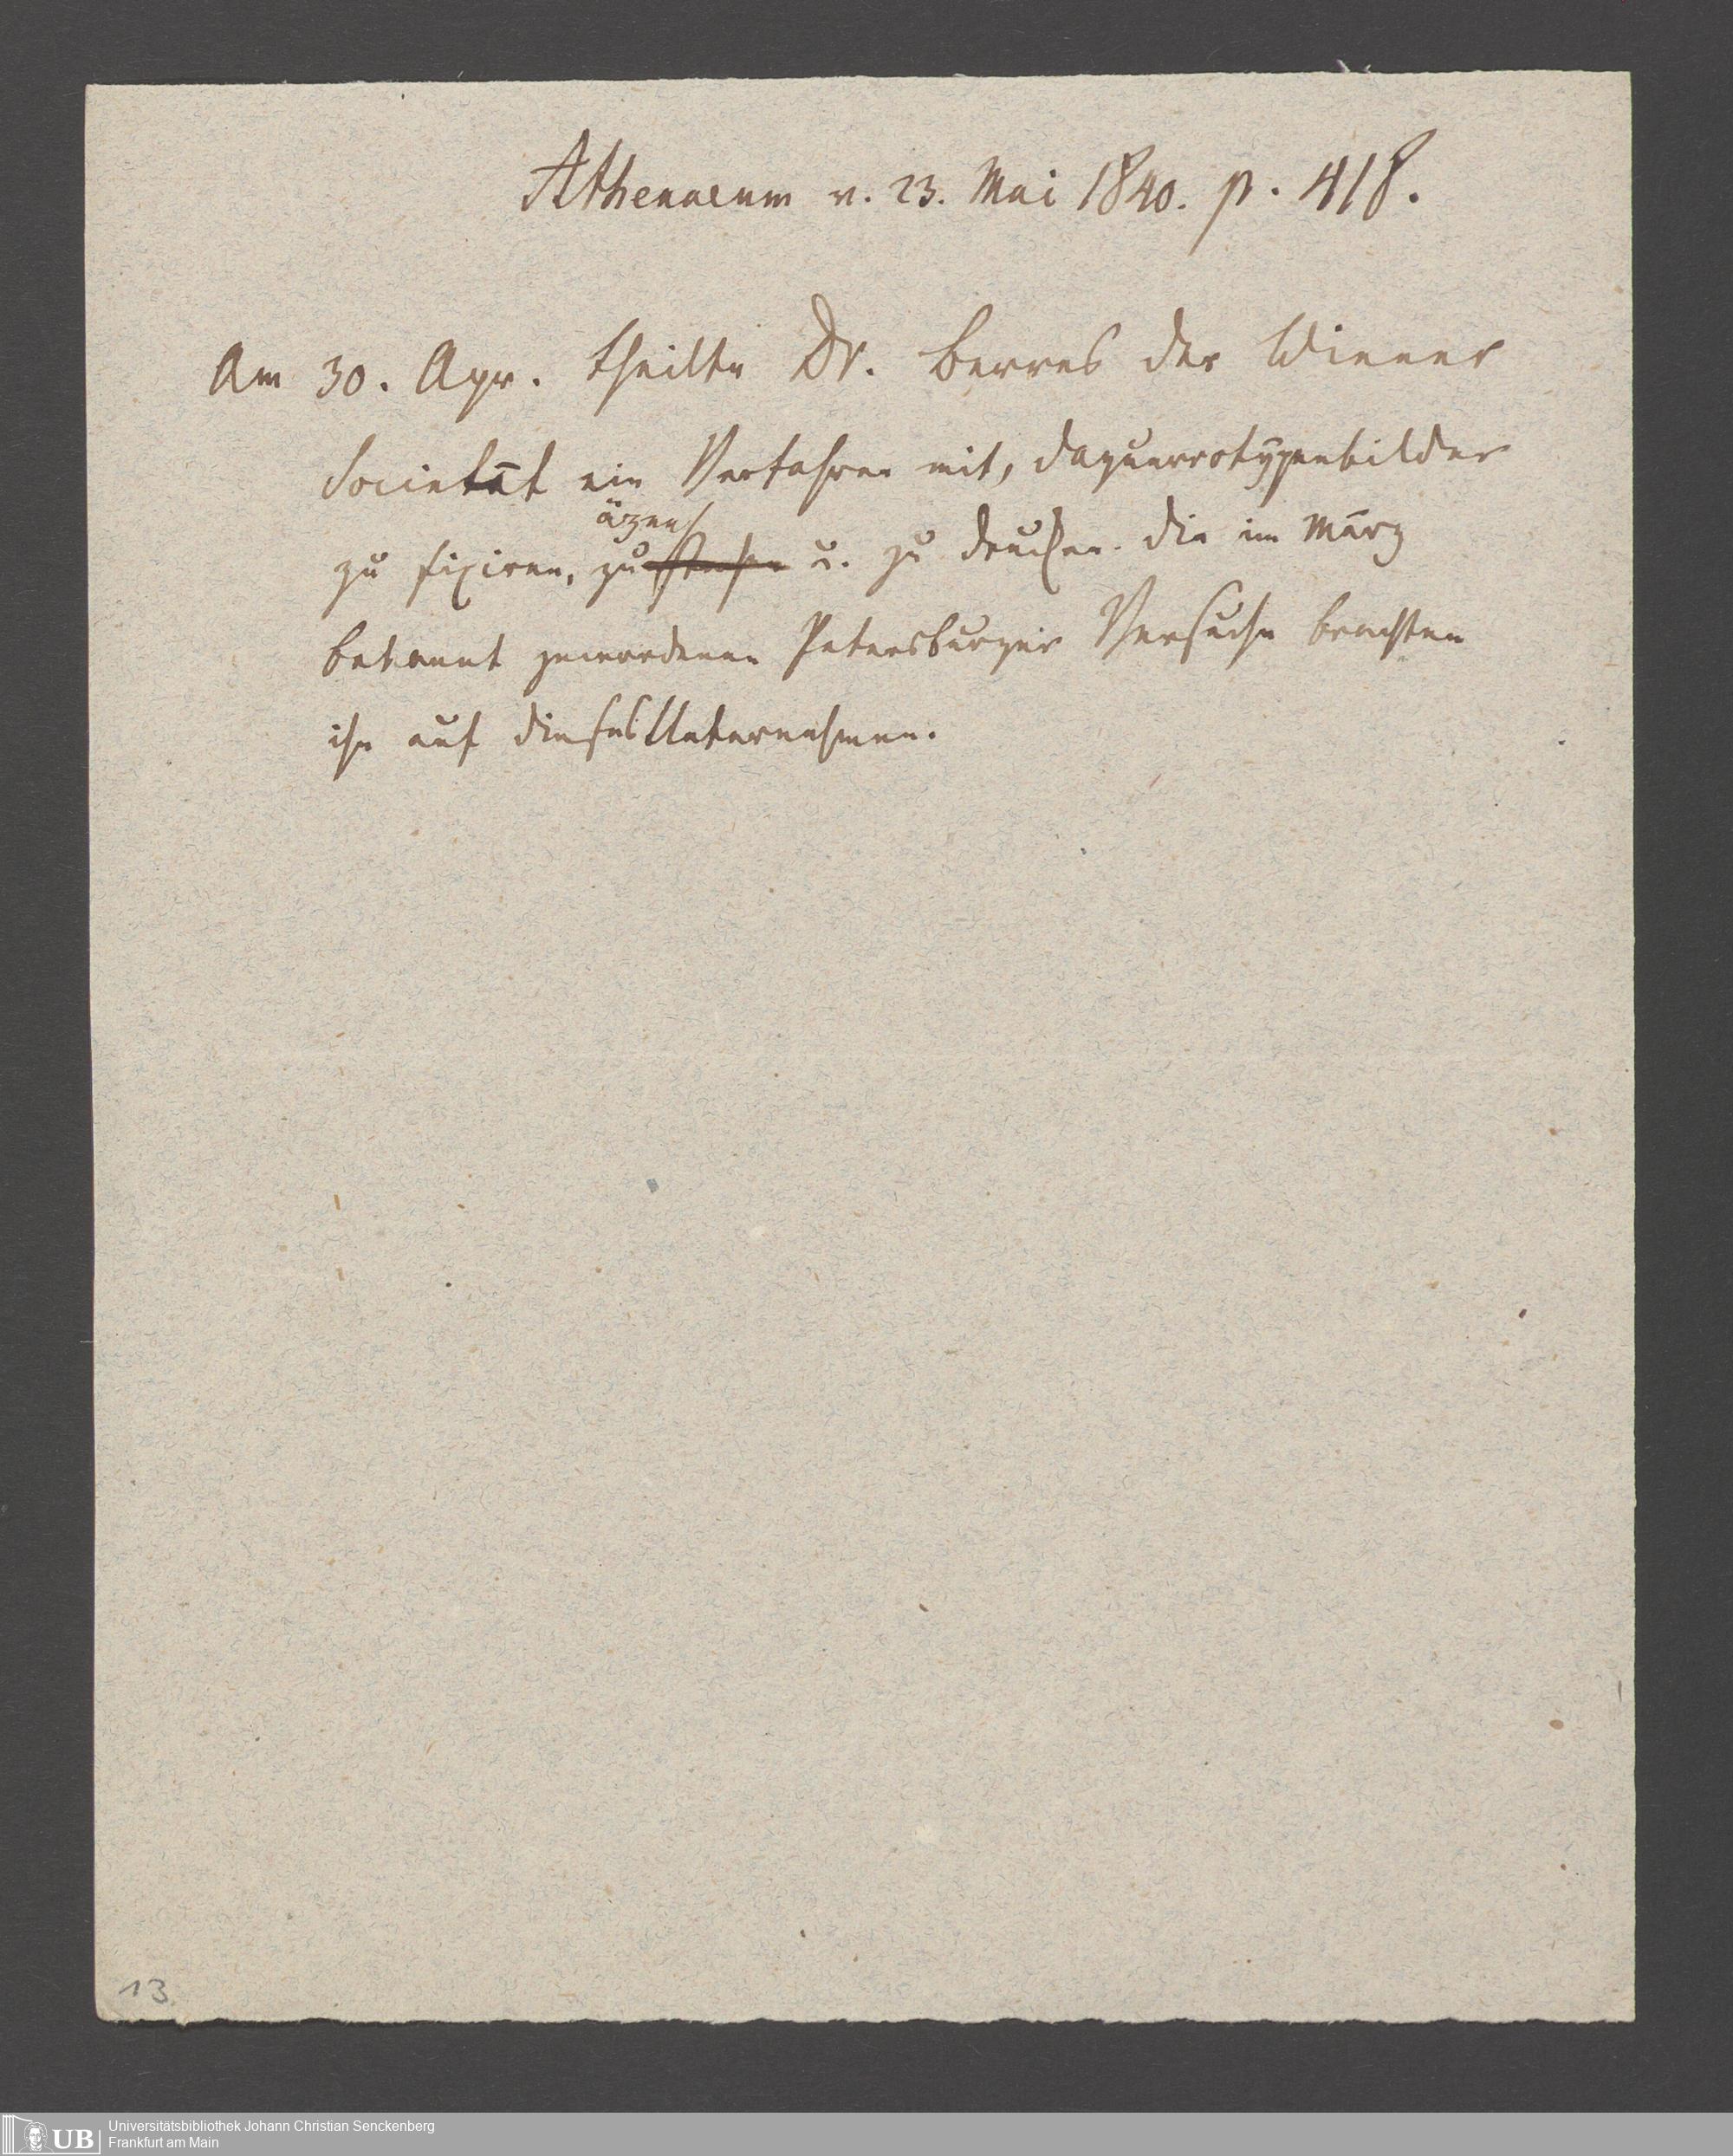 Athenaeum v. 23. Mai 1840. p. 418.
Am 30. Apr. theilte Dr. Berres der Wiener
Societät ein Verfahren mit, Daguerrotypenbilder
äzen
zu fixiren, zu u. zu drucken. Die im März
bekannt gewordenen Petersburger Versuche brachten
ihn auf dieses Unternehmen.
13
UB
Universitätsbibliothek Johann Christian Senckenberg
Frankfurt am Main